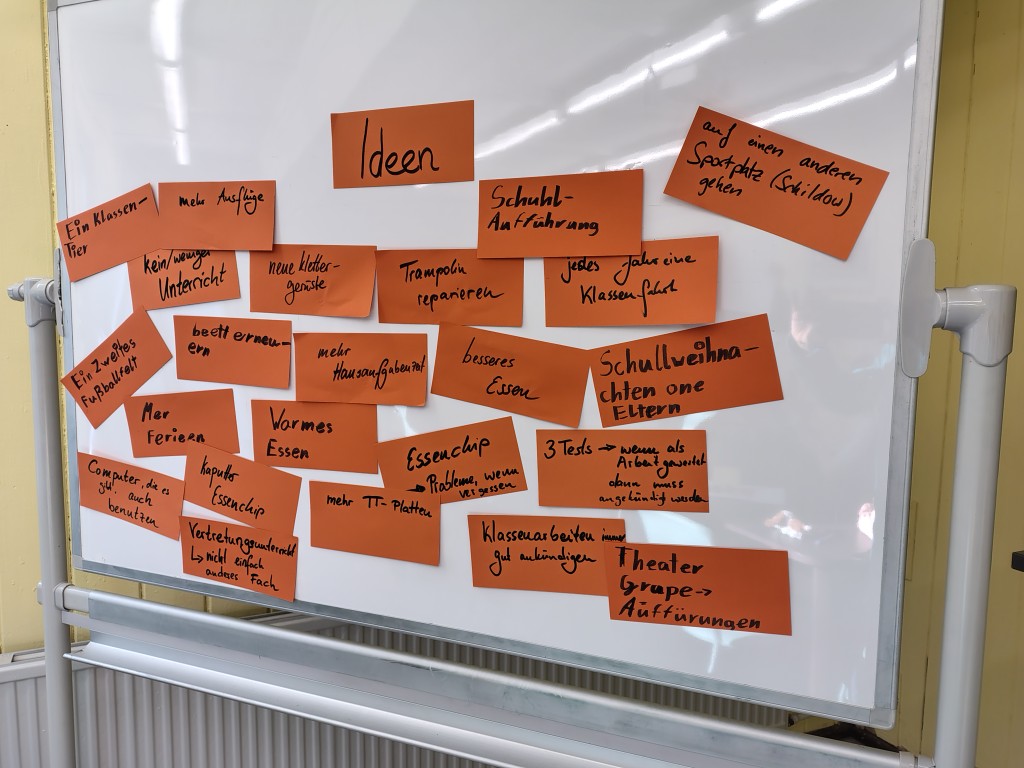 Ideen
auf einen anderen
Sportplatz (Schildow)
gehen
Schuhl-
Aufführung
mehr Ausflüge
Ein Klassen-
Tier
kein/weniger
Unterricht
neue kletter-
gerüste
Trampolin
reparieren
jedes Jahr eine
Klassenfahrt
Ein Zweites
Fußballfelt
beett erneu-
ern
mehr
Hausaufgabenzeit
besseres
Essen
Schullweihna-
chten one
Eltern
Mer
Ferieen
Warmes
Essen
Essenchip
→ Probleme, wenn
vergessen
3 Tests → wenn als
Arbeit gewertet
dann muss
angekündigt werden
Computer, die es
gibt, auch
benutzen
kaputter
Essenchip
mehr TT-Platten
Vertretungsunterricht
↳ nicht einfach
anderes Fach
Klassenarbeiten immer
gut ankündigen
Theater
Grupe->
Auffürungen